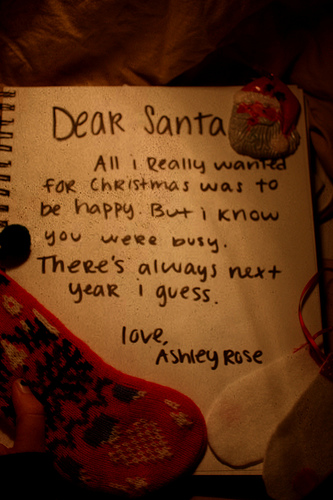 Dear Santa
All i Really wanted
for christmas was to
be happy. But i know
you were busy.
There's always next
year i guess.
love,
Ashley Rose